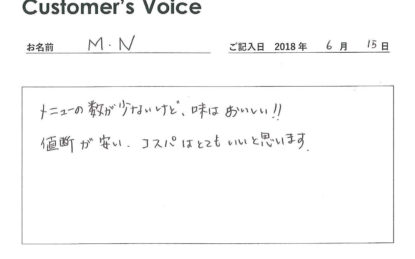 Customer's Voice
お名前 M・N ご記入日 2018年 6月 15日
メニューの数が少ないけど、味はおいしい!!
値断が安い. コスパはとてもいいと思います.